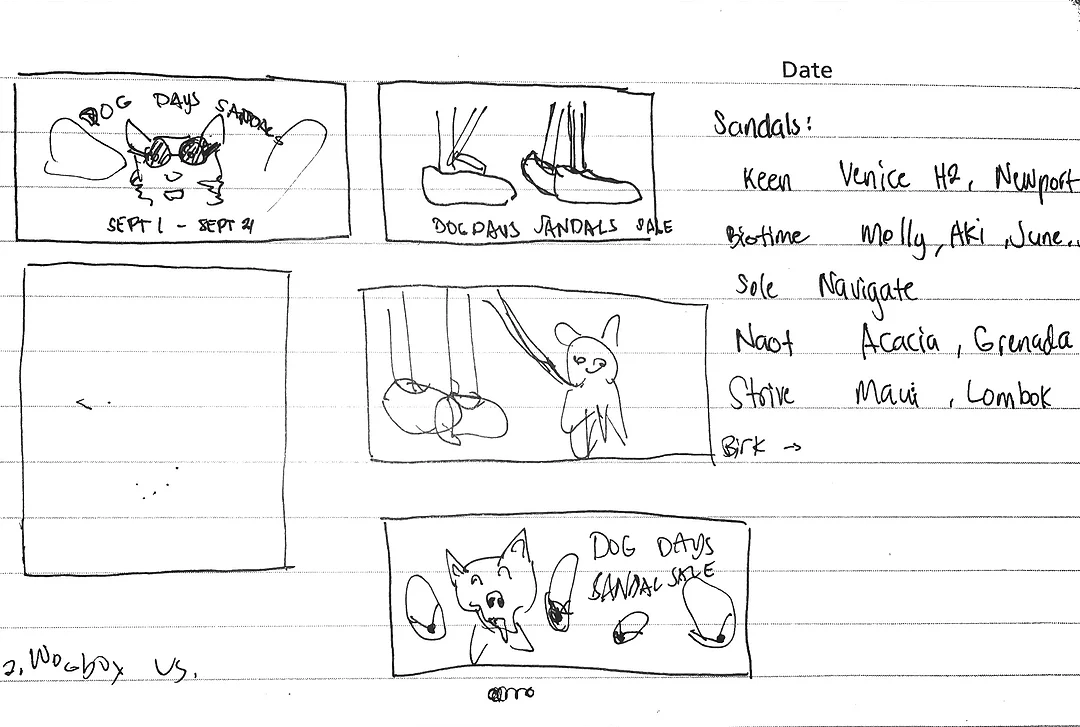 Date
DOG DAYS SANDAL
SEPT 1 - SEPT 21
DOG DAYS SANDALS SALE
Sandals:
Keen Venice H2, Newport
Biotime Molly, Aki, June..
Sole Navigate
Naot Acacia, Grenada
Strive Maui, Lombok
Birk →
DOG DAYS
SANDAL SALE
2. vs.